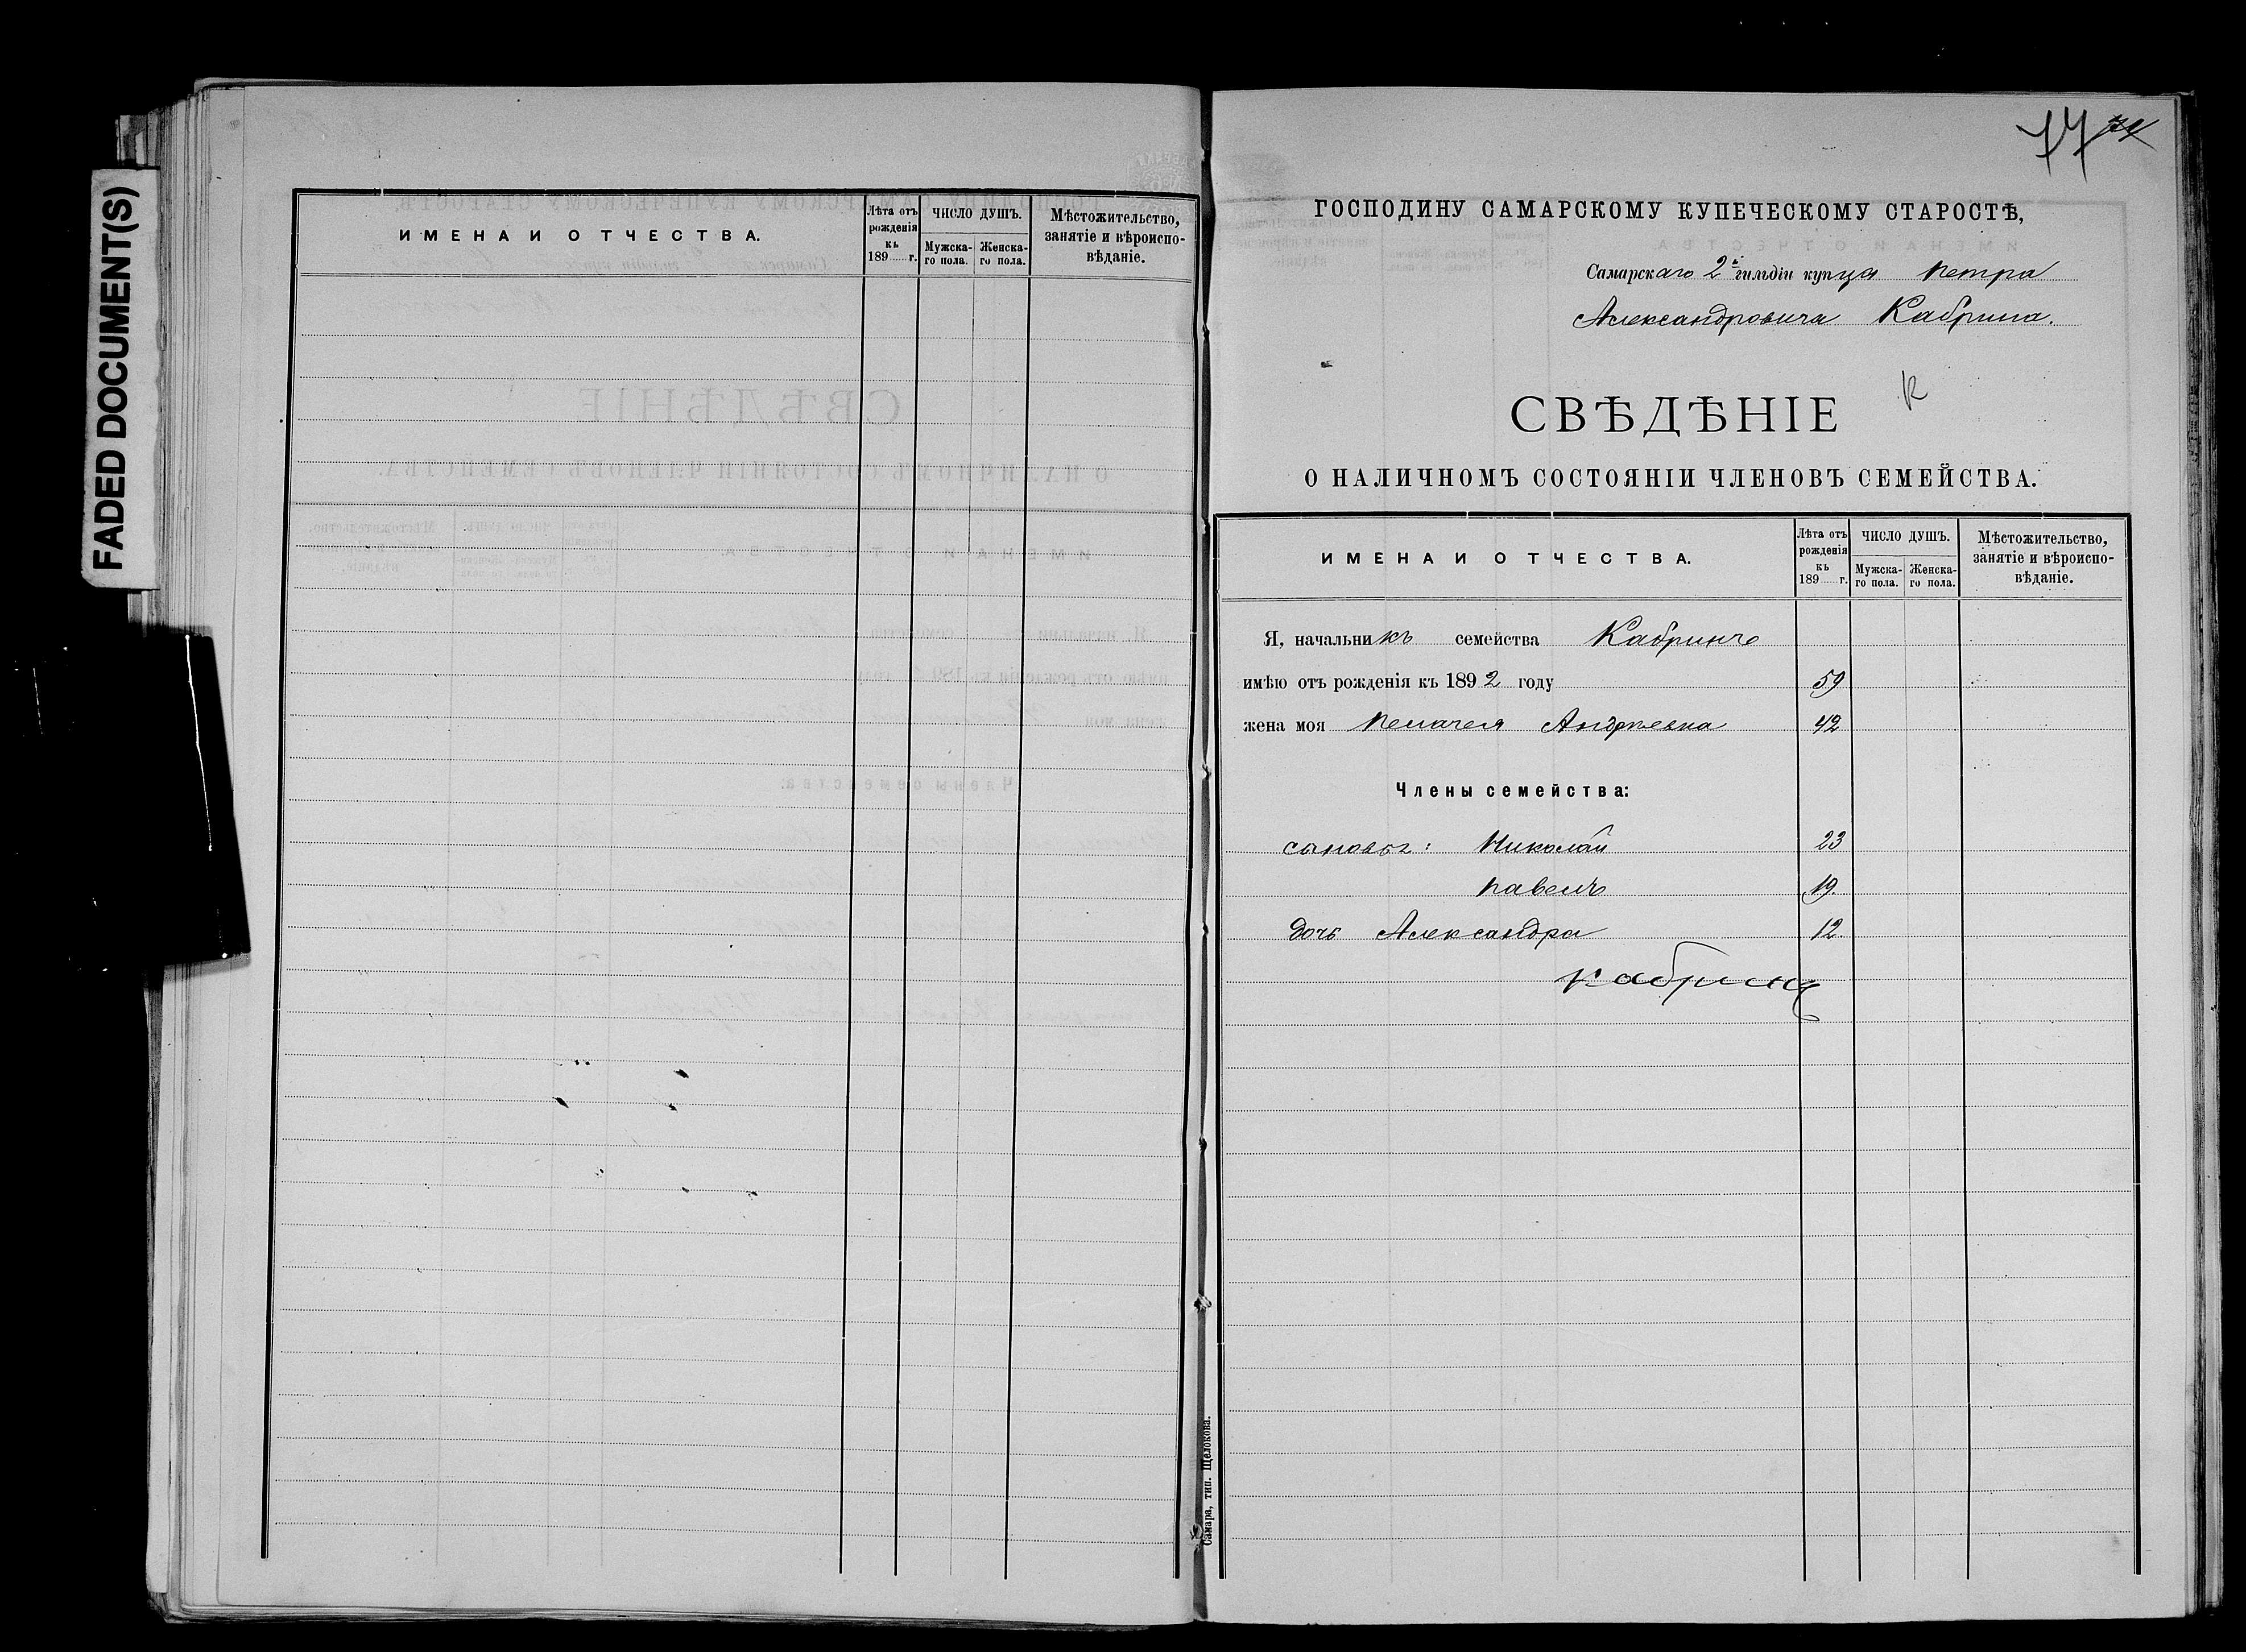 FADED DOCUMENT(S)
ИМЕНА И ОТЧЕСТВА.
Лѣта отъ рожденія къ 189 г.
ЧИСЛО ДУШЪ.
Мужска-го пола.
Женска-го пола.
Мѣстожительство, занятіе и вѣроиспо-вѣданіе.
77
ГОСПОДИНУ САМАРСКОМУ КУПЕЧЕСКОМУ СТАРОСТѢ,
Самарскаго 2й гильдіи купца Петра
Александровича Кабрина.
К
СВѢДѢНІЕ
О НАЛИЧНОМЪ СОСТОЯНІИ ЧЛЕНОВЪ СЕМЕЙСТВА.
ИМЕНА И ОТЧЕСТВА.
Лѣта отъ рожденія къ 189 г.
ЧИСЛО ДУШЪ.
Мужска-го пола.
Женска-го пола.
Мѣстожительство, занятіе и вѣроиспо-вѣданіе.
Я, начальникъ семейства Кабринъ
имѣю отъ рожденія къ 1892 году 59
жена моя Андреевна 42
Члены семейства:
сыновья: Николай 23
Павелъ 19
дочь Александра 12
Кабринъ
Самара, тип. Щелокова.